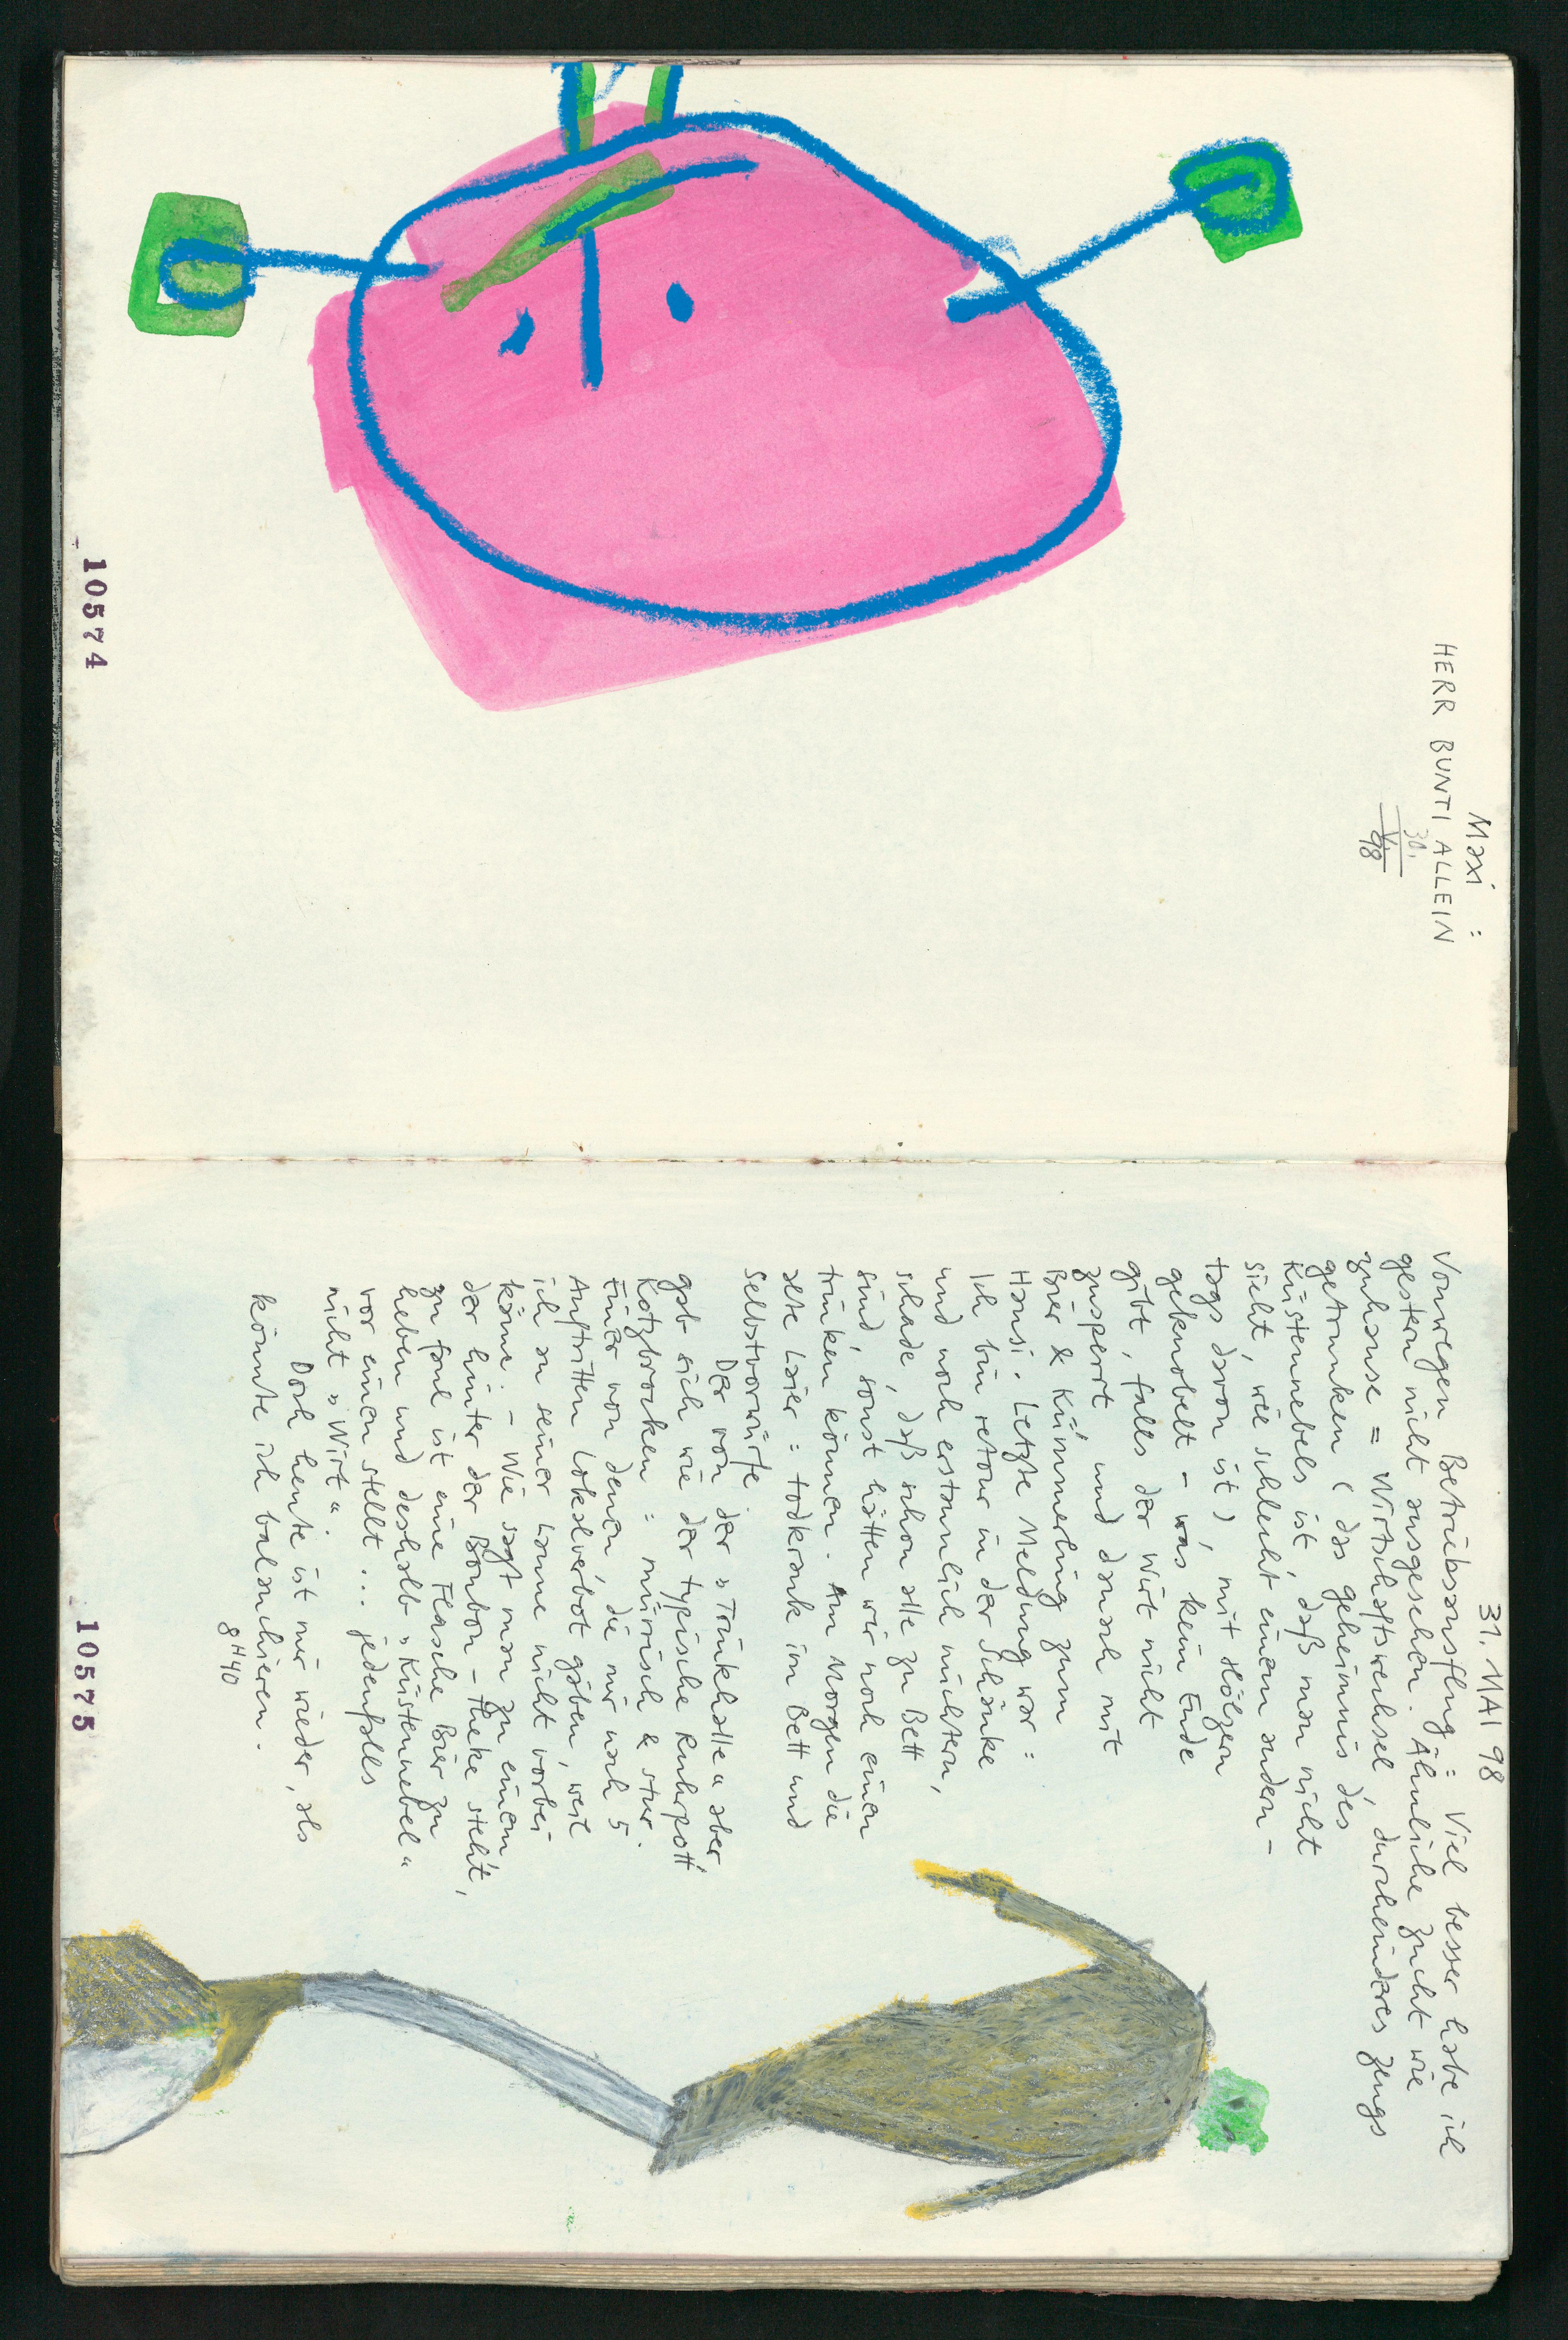 Maxi :
HERR BUNTI ALLEIN
30.
V.
98
10574
31. MAI 98
Vonwegen Betriebsausflug : Viel besser habe ich
gestern nicht ausgesehen. Ähnliche Zucht wie
zuhause = Wirtschaftswechsel, durcheinderes Zeugs
getrunken ( das Geheimnis des
Küstennebels ist, daß man nicht
sieht, wie schlecht einem andern-
tags davon ist ), mit Hölzern
geknobelt - was kein Ende
gibt, falls der Wirt nicht
zusperrt und danach mit
Bier & Kümmerling zum
Hansi. Letzte Meldung war :
Ich bin retour in der Schänke
und noch erstaunlich nüchtern,
schade, daß schon alle zu Bett
sind, sonst hätten wir noch einen
trinken können. Am Morgen die
alte Leier : todkrank im Bett und
Selbstvorwürfe.
Der von der „Trinkhalle“ aber
gab sich wie der typische Ruhrpott
Kotzbrocken : mürrisch & stur.
Einer von denen, die mir nach 5
Auftritten Lokalverbot gäben, weil
ich an seiner Laune nicht vorbei
käme. - Wie sagt man zu einem
der hinter der Bonbon-Theke steht,
zu faul ist eine Flasche Bier zu
heben und deshalb „Küstennebel“
vor einen stellt ... jedenfalls
nicht „Wirt“.
Doch heute ist mir wieder, als
könnte ich balanchieren.
8H40
10575